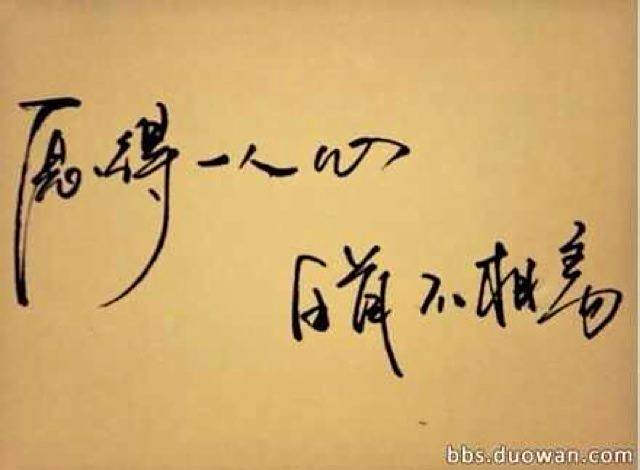 愿得一人心
白首不相离
bbs.duowan.com